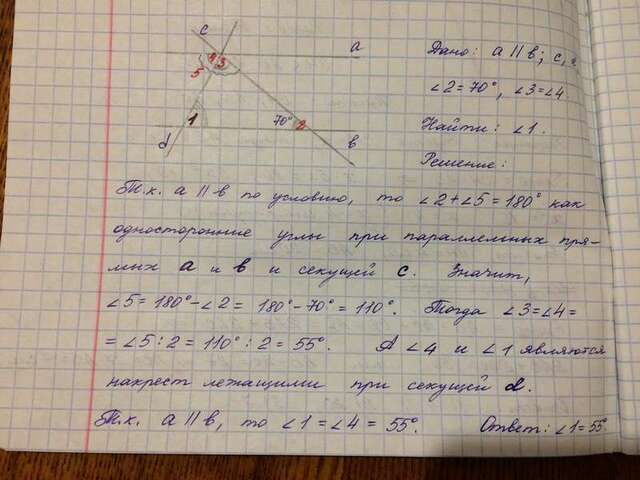 c
a
4 3
5
1
70° 2
d
b
Дано: a || b; c,
∠2=70°, ∠3=∠4
Найти: ∠1.
Решение:
Т.к. a || b по условию, то ∠2+∠5=180° как
односторонние углы при параллельных пря-
мых a и b и секущей c. Значит,
∠5=180°-∠2= 180°-70°= 110°. Тогда ∠3=∠4=
=∠5:2=110°:2=55°. А ∠4 и ∠1 являются
накрест лежащими при секущей d.
Т.к. a || b, то ∠1=∠4=55°. Ответ: ∠1=55°